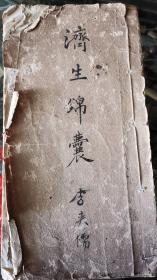 濟生錦囊
李夫僧